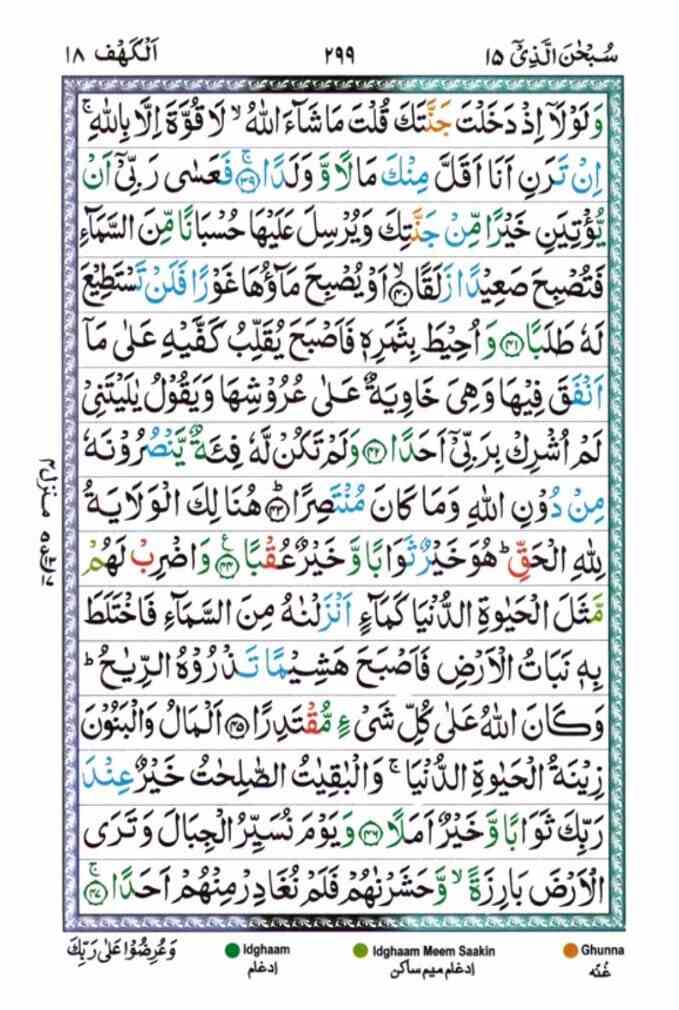 سُبْحٰنَ الَّذِیْۤ ۱۵
۲۹۹
اَلْكَهْف ۱۸
وَلَوْلَاۤ اِذْ دَخَلْتَ جَنَّتَكَ قُلْتَ مَا شَآءَ اللّٰهُ ۙ لَا قُوَّةَ اِلَّا بِاللّٰهِ ۚ
اِنْ تَرَنِ اَنَا اَقَلَّ مِنْكَ مَالًا وَّ وَلَدًا ۚ ﴿۳۹﴾ فَعَسٰى رَبِّیْۤ اَنْ
یُّؤْتِیَنِ خَیْرًا مِّنْ جَنَّتِكَ وَیُرْسِلَ عَلَیْهَا حُسْبَانًا مِّنَ السَّمَآءِ
فَتُصْبِحَ صَعِیْدًا زَلَقًا ۙ ﴿۴۰﴾ اَوْ یُصْبِحَ مَآؤُهَا غَوْرًا فَلَنْ تَسْتَطِیْعَ
لَهٗ طَلَبًا ﴿۴۱﴾ وَ اُحِیْطَ بِثَمَرِهٖ فَاَصْبَحَ یُقَلِّبُ كَفَّیْهِ عَلٰى مَاۤ
اَنْفَقَ فِیْهَا وَهِیَ خَاوِیَةٌ عَلٰى عُرُوْشِهَا وَیَقُوْلُ یٰلَیْتَنِیْ
لَمْ اُشْرِكْ بِرَبِّیْۤ اَحَدًا ﴿۴۲﴾ وَلَمْ تَكُنْ لَّهٗ فِئَةٌ یَّنْصُرُوْنَهٗ
مِنْ دُوْنِ اللّٰهِ وَمَا كَانَ مُنْتَصِرًا ؕ ﴿۴۳﴾ هُنَالِكَ الْوَلَایَةُ
لِلّٰهِ الْحَقِّ ؕ هُوَ خَیْرٌ ثَوَابًا وَّ خَیْرٌ عُقْبًا ﴿۴۴﴾ وَ اضْرِبْ لَهُمْ
مَّثَلَ الْحَیٰوةِ الدُّنْیَا كَمَآءٍ اَنْزَلْنٰهُ مِنَ السَّمَآءِ فَاخْتَلَطَ
بِهٖ نَبَاتُ الْاَرْضِ فَاَصْبَحَ هَشِیْمًا تَذْرُوْهُ الرِّیٰحُ ؕ
وَكَانَ اللّٰهُ عَلٰى كُلِّ شَیْءٍ مُّقْتَدِرًا ﴿۴۵﴾ اَلْمَالُ وَالْبَنُوْنَ
زِیْنَةُ الْحَیٰوةِ الدُّنْیَا ۚ وَالْبٰقِیٰتُ الصّٰلِحٰتُ خَیْرٌ عِنْدَ
رَبِّكَ ثَوَابًا وَّ خَیْرٌ اَمَلًا ﴿۴۶﴾ وَیَوْمَ نُسَیِّرُ الْجِبَالَ وَتَرَى
الْاَرْضَ بَارِزَةً ۙ وَّ حَشَرْنٰهُمْ فَلَمْ نُغَادِرْ مِنْهُمْ اَحَدًا ۚ ﴿۴۷﴾
وَعُرِضُوْا عَلٰى رَبِّكَ
Idghaam
ادغام
Idghaam Meem Saakin
ادغام میم ساكن
Ghunna
غُنّه